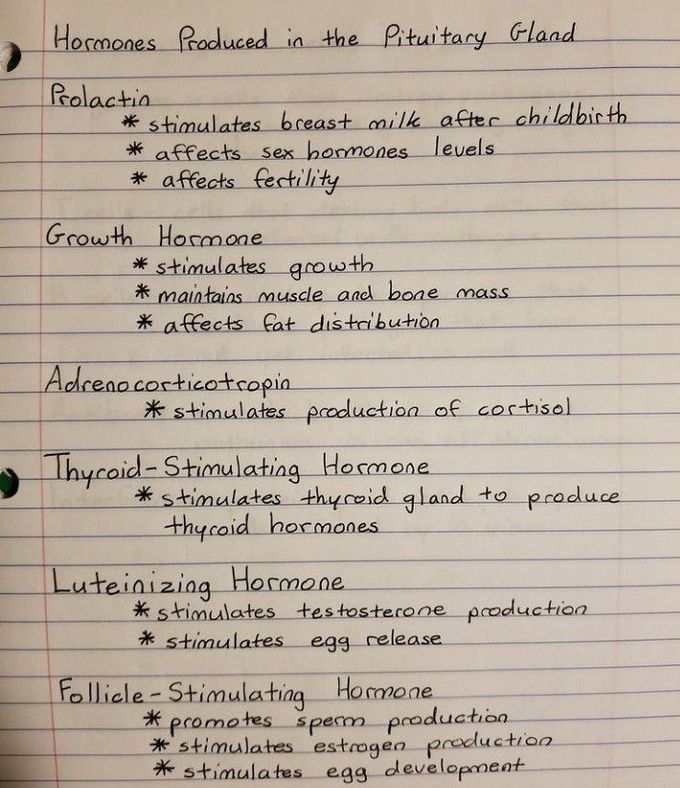 Hormones Produced in the Pituitary Gland
Prolactin
* stimulates breast milk after childbirth
* affects sex hormones levels
* affects fertility
Growth Hormone
* stimulates growth
* maintains muscle and bone mass
* affects fat distribution
Adrenocorticotropin
* stimulates production of cortisol
Thyroid-Stimulating Hormone
* stimulates thyroid gland to produce
thyroid hormones
Luteinizing Hormone
* stimulates testosterone production
* stimulates egg release
Follicle-Stimulating Hormone
* promotes sperm production
* stimulates estrogen production
* stimulates egg development